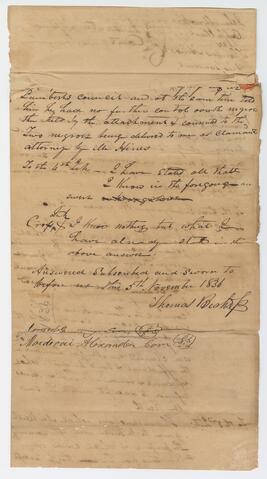 Lambert's council and at the same time told
him he had no further control over the negroes
than held by the attachment & consented to the
Two negroes being delivered to me as claimants
attorney by Mr Hinds
To the 4th Int — I have stated all that
I know in the foregoing an
swer
Int
Cross 1 I know nothing but what I
have already stated in the
above answer
Answered Subscribed and sworn to
before us this 5th November 1836
Thomas
Mordecai Alexander Com